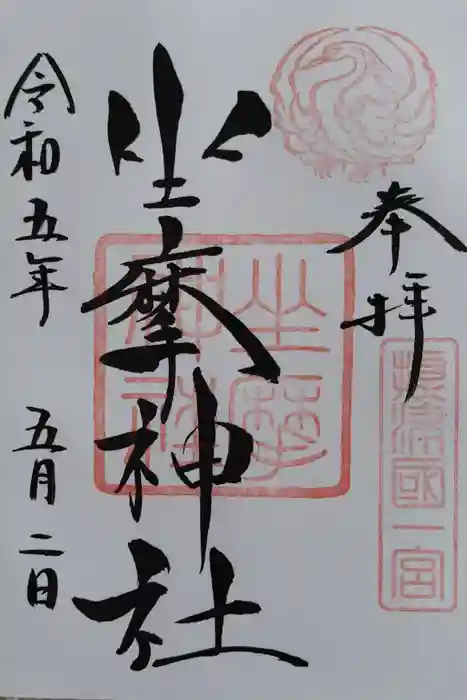 奉拝
摂津國一宮
坐摩神社
坐摩神社
令和五年 五月二日